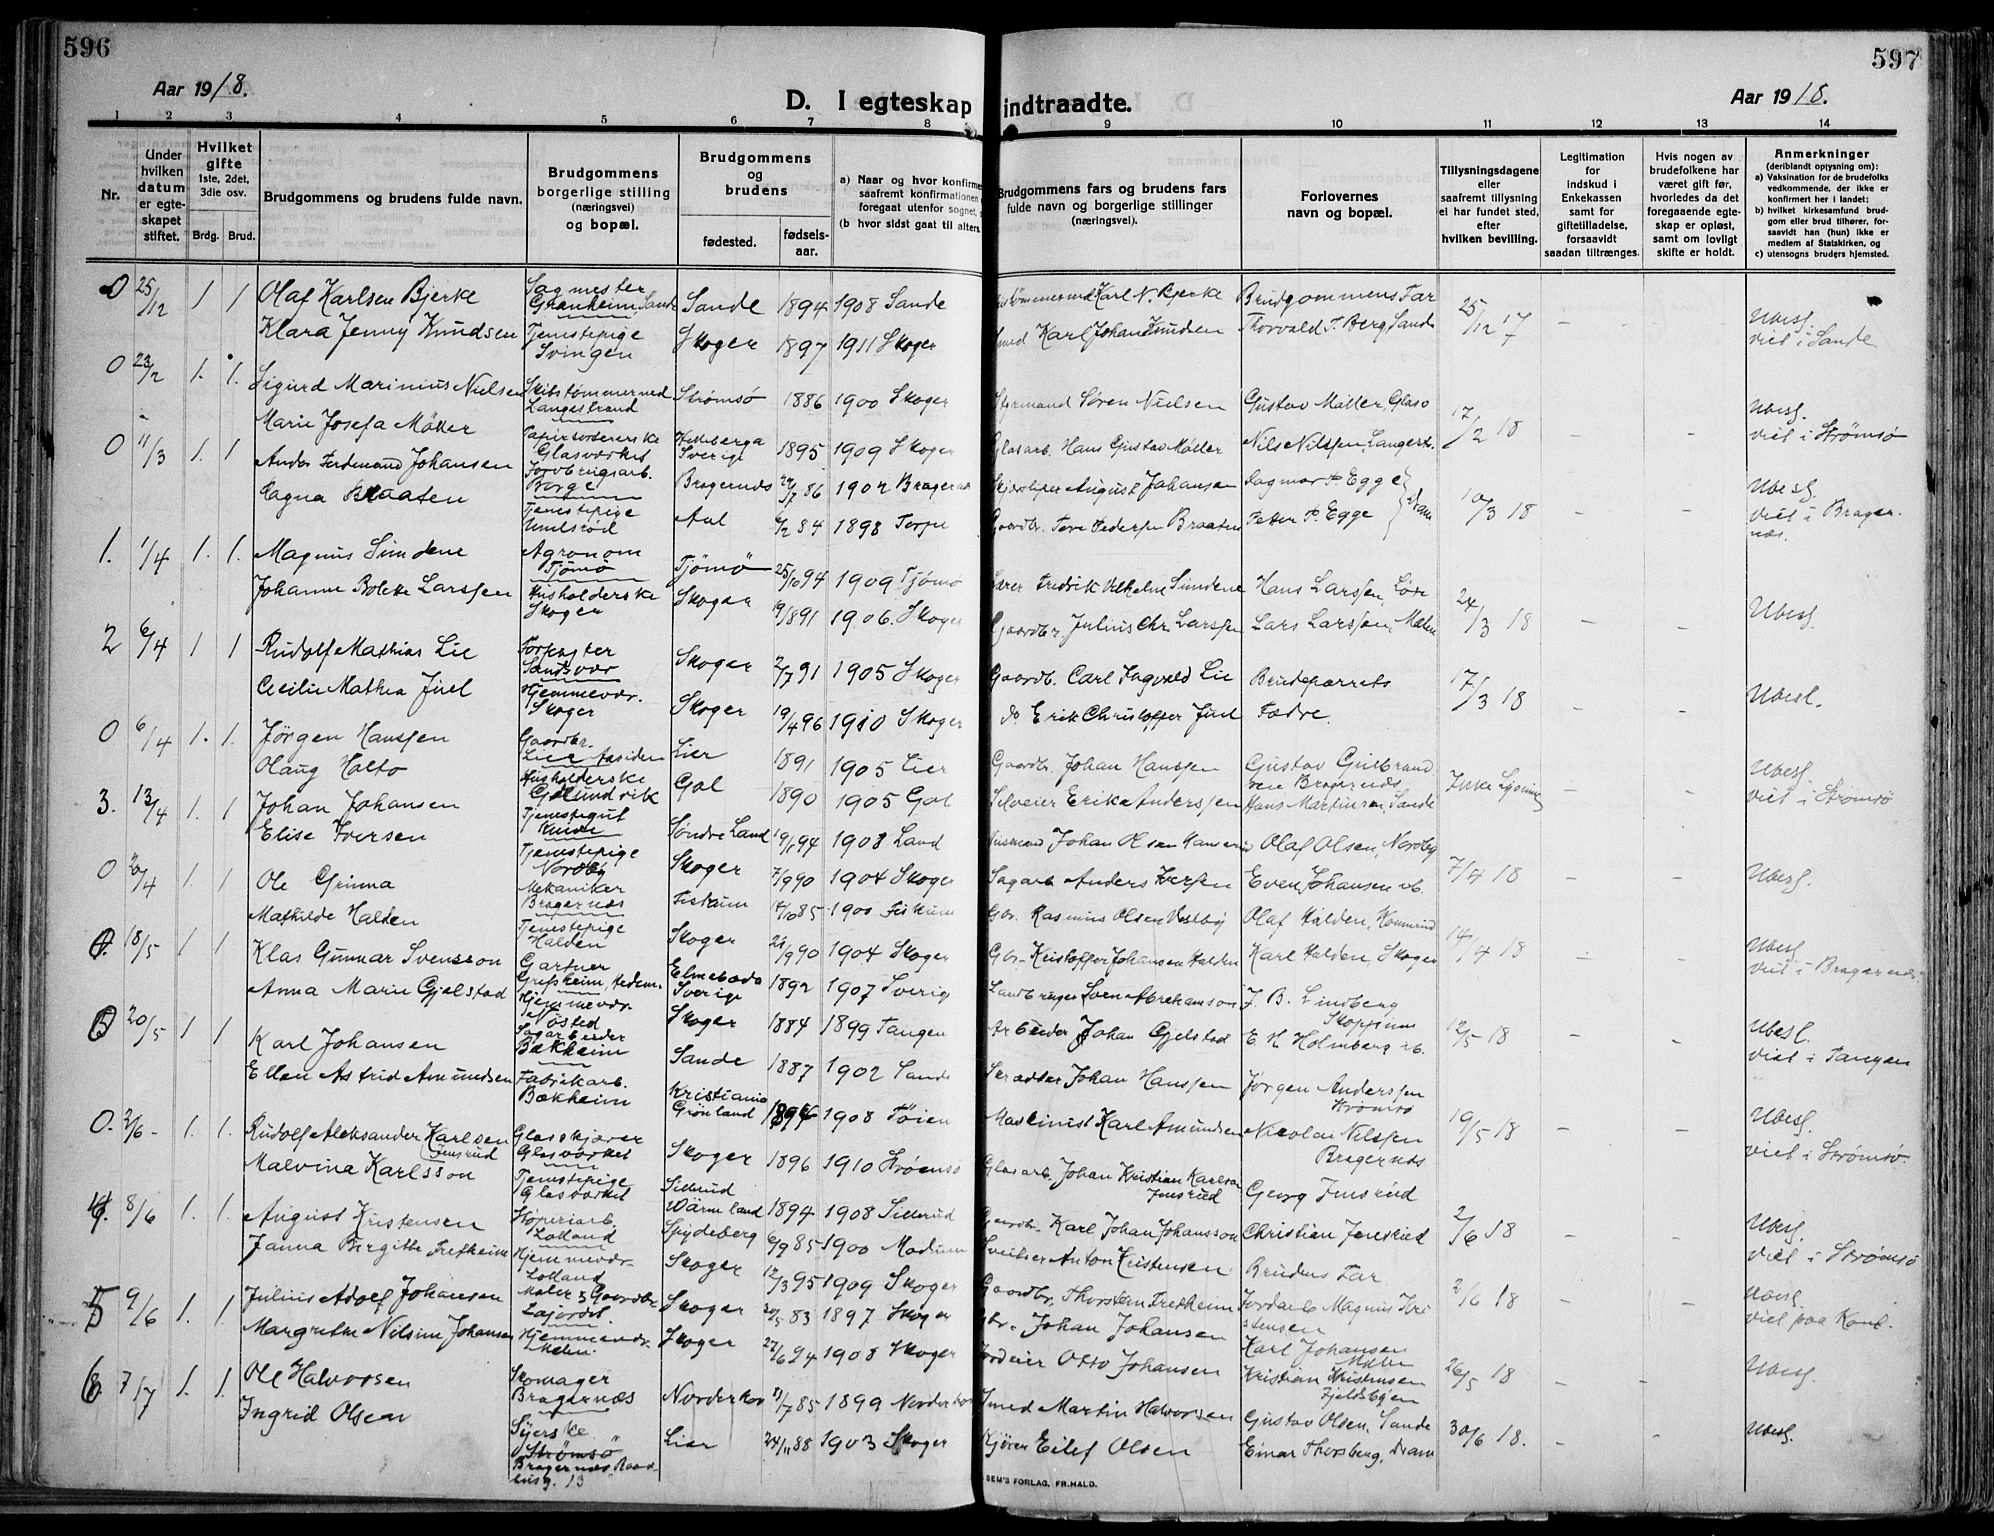 596
597
Aar 1918.
D. I egteskap indtraadte.
Aar 1918.
1 2 3 4 5 6 7 8 9 10 11 12 13 14
Nr.
Under hvilken datum er egteskapet stiftet.
Hvilket gifte 1ste, 2det, 3die osv.
Brdg. Brud.
Brudgommens og brudens fulde navn.
Brudgommens borgerlige stilling (næringsvei) og bopæl.
Brudgommens og brudens
fødested. fødselsaar.
a) Naar og hvor konfirme
saafremt konfirmationen
foregaat utenfor sognet,
(b hvor sidst gaat til alters.
Brudgommens fars og brudens fars fulde navn og borgerlige stillinger (næringsvei).
Forlovernes navn og bopæl.
Tillysningsdagene eller saafremt tillysning ei har fundet sted, efter hvilken bevilling.
Legitimation for indskud i Enkekassen samt for giftetilladelse, forsaavidt saadan tiltrænges.
Hvis nogen av brudefolkene har været gift før, hvorledes da det foregaaende egteskap er opløst, samt om lovligt skifte er holdt.
Anmerkninger (deriblandt opysning om): a) Vaksination for de brudefolks vedkommende, der ikke er konfirmert her i landet; b) hvilket kirkesamfund brudgom eller brud tilhører, forsaavidt han (hun) ikke er medlem af Statskirken, og c) utensogns bruders hjemsted.
0 25/12 1 1 Olaf Karlsen Bjerke Sagmester Granheim, Sande Sande 1894 1908 Sande Karl N. Bjerke Brudgommens Far 25/12 17 Ubesl.
Klara Jenny Knudsen Tjenestepige Svingen Skoger 1897 1911 Skoger Karl Johan Knudsen Thorvald T. Berg, Sande viet i Sande
0 23/2 1. 1. Sigurd Marinius Nielsen Skibstømmermed Langestrand Strømsø 1886 1900 Skoger Styrmand Søren Nielsen Gustav Møller, Glasv 17/2 18 Ubesl.
Marie Josefa Möller Papirsorterерske Glasværket Sverige 1895 1909 Skoger Glasarb. Hans Gustav Møller Nils Nilssen, Langestr. viet i Strømsø
0 11/3 1. 1 Anders Ferdinand Johansen Borge Bragernæs 24/7 86 1902 Bragernæs August Johansen Dagmar P. Egge 10/3 18 Ubesl.
Dagna Braaten Tjenestepige Aal 6/2 84 1898 Torpe Gaardbr. Tore Pedersen Braaten Peter P. Egge Dram viet i Bragernæs.
1. 1/4 1. 1. Magnus Sundene Agronom Tjømø Tjömö 25/10 94 1909 Tjømø Lærer Fredrik Vilhelm Sundene Hans Larssen, 24/3 18 Ubesl.
Johanne Bolette Larssen Husholderske Skoger Skoger 19/8 91 1906. Skoger Gaardbr. Julius Chr. Larssen Lars Larssen, Ubesl.
2 6/4 1 1 Rudolf Mathias Lie Forpagter Sandsvær Skoger 2/7 91 1905 Skoger Gaardb. Carl Ingvald Lie Brudeparrets 17/3 18 Ubesl.
Cecilie Mathea Juel Hjemmevær. Skoger Skoger 19/4 96 1910 Skoger do Erik Christoffer Juel Fædre.
0 6/4 1. 1. Jørgen Hanssen Gaardbr. Lier Aasiden Lier 1891 1905 Lier Gaardb. Johan Hanssen Gustav Gulbrand Bragernæs Ikke Lysning Ubesl.
Olaug Holto Husholderske Gulundvik Gol 1890 1905 Gol Erik Anderssen Hans Martinsen, Sande viet i Strömsö
3. 13/4 1. 1 Johan Johansen Tjenestegut Søndre Land 19/1 94 1908 Land Johan Olsen Olaf Olsen, Nordby 7/4 18 Ubesl.
Elise Iversen Tjenestepige Nordby Skoger 7/9 90 1904 Skoger Sagarb. Anders Iversen Even Johansen
0 20/4 1. 1 Ole Grinna Mekaniker Bragernæs Fiskum 14/10 85 1900 Fiskum Gbr. Rasmus Olsen Vestby Olaf Halden, 14/4 18 Ubesl.
Mathilde Halden Tjenestepige Halden Skoger 21/9 90 1904 Skoger Gbr. Kristoffer Johansen Halden Karl Halden, Skoger viet i Bragernæs
18/5 1 1 Klas Gunnar Svensson Gartner Sverige 1892 1907 Sverige Sven Abrahamson J. B. Lindberg 12/5 18 Ubesl.
Anna Marie Gjelstad Hjemmevær. Nøsted Skoger 1884 1899 Tangen Arbeider Johan Gjelstad E. H. Holmberg viet i Tangen
20/5 1 1 Karl Johansen Sagarbeider Bækheim Sande 1887 1902 Sande Skrædder Johan Hanssen Jørgen Anderssen Strømsø 19/5 18 Ubesl.
Ellen Astrid Amundsen Fabrikarb. Bækheim Kristiania Grønland 1894 1908 Tøien Maskinist Karl Amundsen Nicolai Nilssen Bragernæs viet i Strømsø.
0. 2/6 1. 1. Rudolf Aleksander Karlsen Jensrud Glasskjærer Glasværket Skoger 1896 1910 Strømsø Glasarb. Johan Kristian Karlsen Jensrud Georg Jensrud 2/6 18 Ubesl.
Malvina Karlsson Tjenestepige Glasværket Sillerud Wärmland 1894 1908 Sillerud Gaardbr. Karl Johan Johansson Christian Jensrud viet i Strømsø
8/6 1. 1. August Kristensen Lolland Spydeberg 6/9 85 1900 Modum Sveitser Anton Kristensen Brudens Far 2/6 18 Ubesl.
Janna Birgitte Tretheim Hjemmevær. Lolland Skoger 12/3 95 1909 Skoger Gaardbr. Thorsten Tretheim Magnus Kristensen viet paa Kont.
5 9/6 1. 1. Julius Adolf Johansen Maler & Gaardbr. Skoger 20/5 83 1897 Skoger Gbr. Johan Johansen Karl Johansen 26/5 18 Ubesl.
Margrethe Nilsine Johansen Hjemmevær. Skoger 27/6 94 1908 Skoger Otto Johansen Kristian Kristensen Fjeldsbyen
6 7/7 1. 1. Ole Halvorsen Skomager Bragernæs Norderhov 21/7 85 1899 Norderhov Smed Martin Halvorsen Gustav Olsen, Sande 30/6 18. Ubesl.
Ingrid Olsen Syerske Strømsö Bragernæs Raadhusg. 13 Lier 24/11 88 1903 Skoger Kjører Eilef Olsen Einar Thorsberg, Dram
SEM'S FORLAG, FR.HALD.